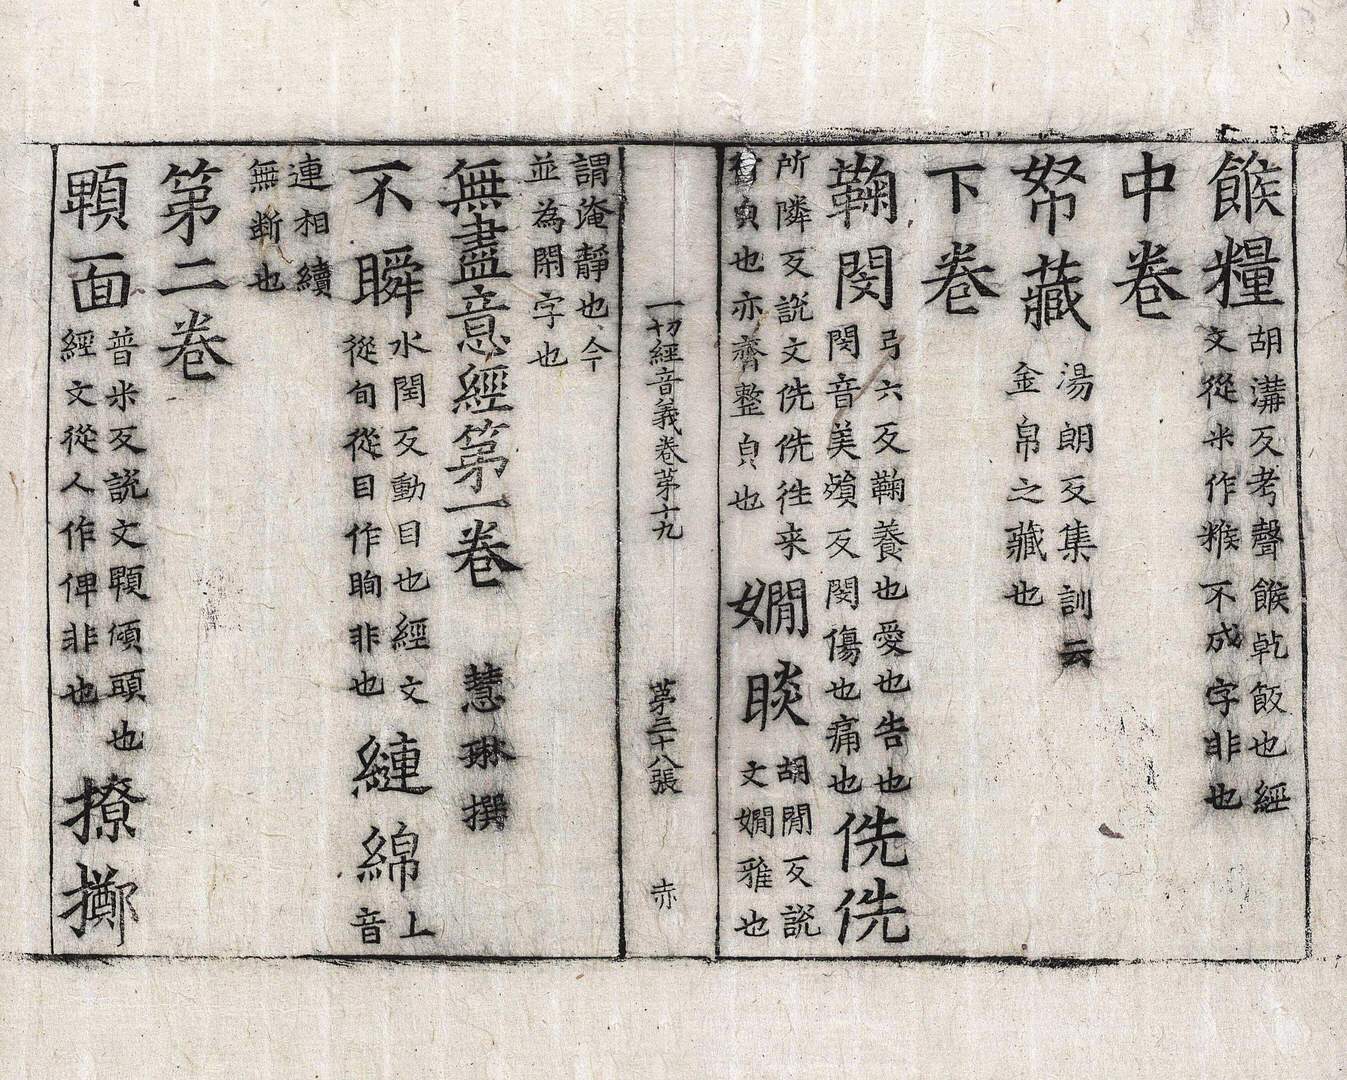 餱糧胡溝反考聲餱乹飯也經
文從米作糇不成字非也
中卷
帑藏湯朗反集訓云
金帛之藏也
下卷
鞠閔弓六反鞠養也愛也告也
閔音美殞反閔傷也痛也侁侁
所隣反說文侁侁往来
皃也亦齊整皃也嫺睒胡閒反說
文嫺雅也
一切經音義卷苐十九 苐三十八張 赤
謂淹靜也今
並為閑字也
無盡意經第一卷 慧琳撰
不瞬水閏反動目也經文
從旬從目作眴非也縺綿上音
連相續
無断也
第二卷
顊面普米反說文顊傾頭也
經文從人作俾非也撩擲